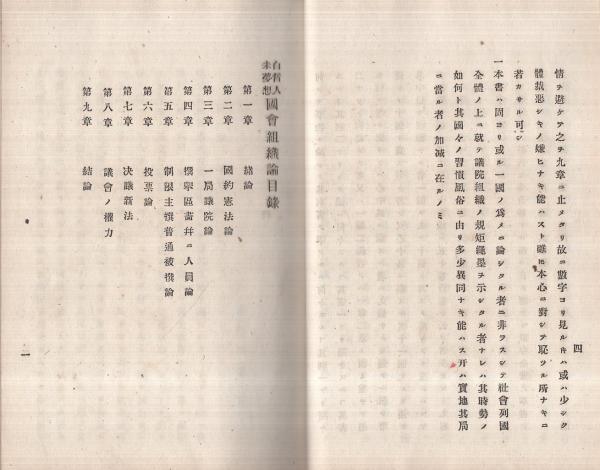 四
情ヲ避ケテ之ヲ九章ニ止メタリ故ニ數字ヨリ見ルキハ或ハ少シク
體裁惡シキノ嫌ヒナキ能ハスト雖𪜈本心ニ對シテ恥ツル所ナキニ
若カサル可シ
一本書ハ固ヨリ或ル一國ノ爲メニ論シタル者ニ非ラスシテ社會列國
全體ノ上ニ就テ議院組織ノ規矩繩墨ヲ示シタル者ナレハ其時勢ノ
如何ト其國々ノ習慣風俗ニ由リ多少異同ナキ能ハス开ハ實地其局
ニ當ル者ノ加減ニ在ルノミ
白晳人未夢想 國會組織論目錄
第一章 緒論
第二章 國約憲法論
第三章 一局議院論
第四章 撰擧區畫幷ニ人員論
第五章 制限主撰普通被撰論
第六章 投票論
第七章 決議新法
第八章 議會ノ權力
第九章 結論
一